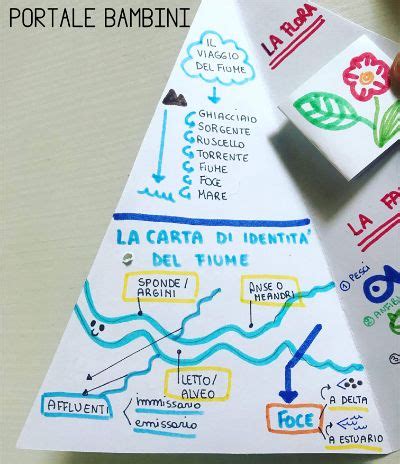 PORTALE BAMBINI
IL
VIAGGIO
DEL FIUME
GHIACCIAIO
SORGENTE
RUSCELLO
TORRENTE
FIUME
FOCE
MARE
LA CARTA DI IDENTITA'
DEL FIUME
SPONDE/
ARGINI
ANSE O
MEANDRI
LETTO/
ALVEO
AFFLUENTI
immissario
emissario
FOCE
A DELTA
A ESTUARIO
LA FLORA
LA FA
① PESCI
② ANFIB